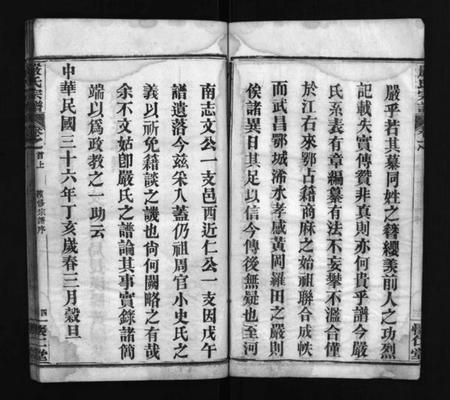 嚴乎若其慕同姓之簪纓羡前人之功烈
記載失實傳贊非真則亦何貴乎譜今嚴
氏系表有章編纂有法不妄攀不濫合僅
於江右來鄂占籍商麻之始祖聯合成帙
而武昌鄂城浠水孝感黃岡羅田之嚴則
俟諸異日其足以信今傳後無疑也至河
南志文公一支邑西近仁公一支因戊午
譜遺落今玆采入蓋仍祖周官小史氏之
義以祈免籍談之譏也尙何闕略之有哉
余不文姑卽嚴氏之譜論其事實錄諸簡
端以爲政教之一助云
中華民國三十六年丁亥歲春三月穀旦
嚴氏宗譜
卷之首上
四